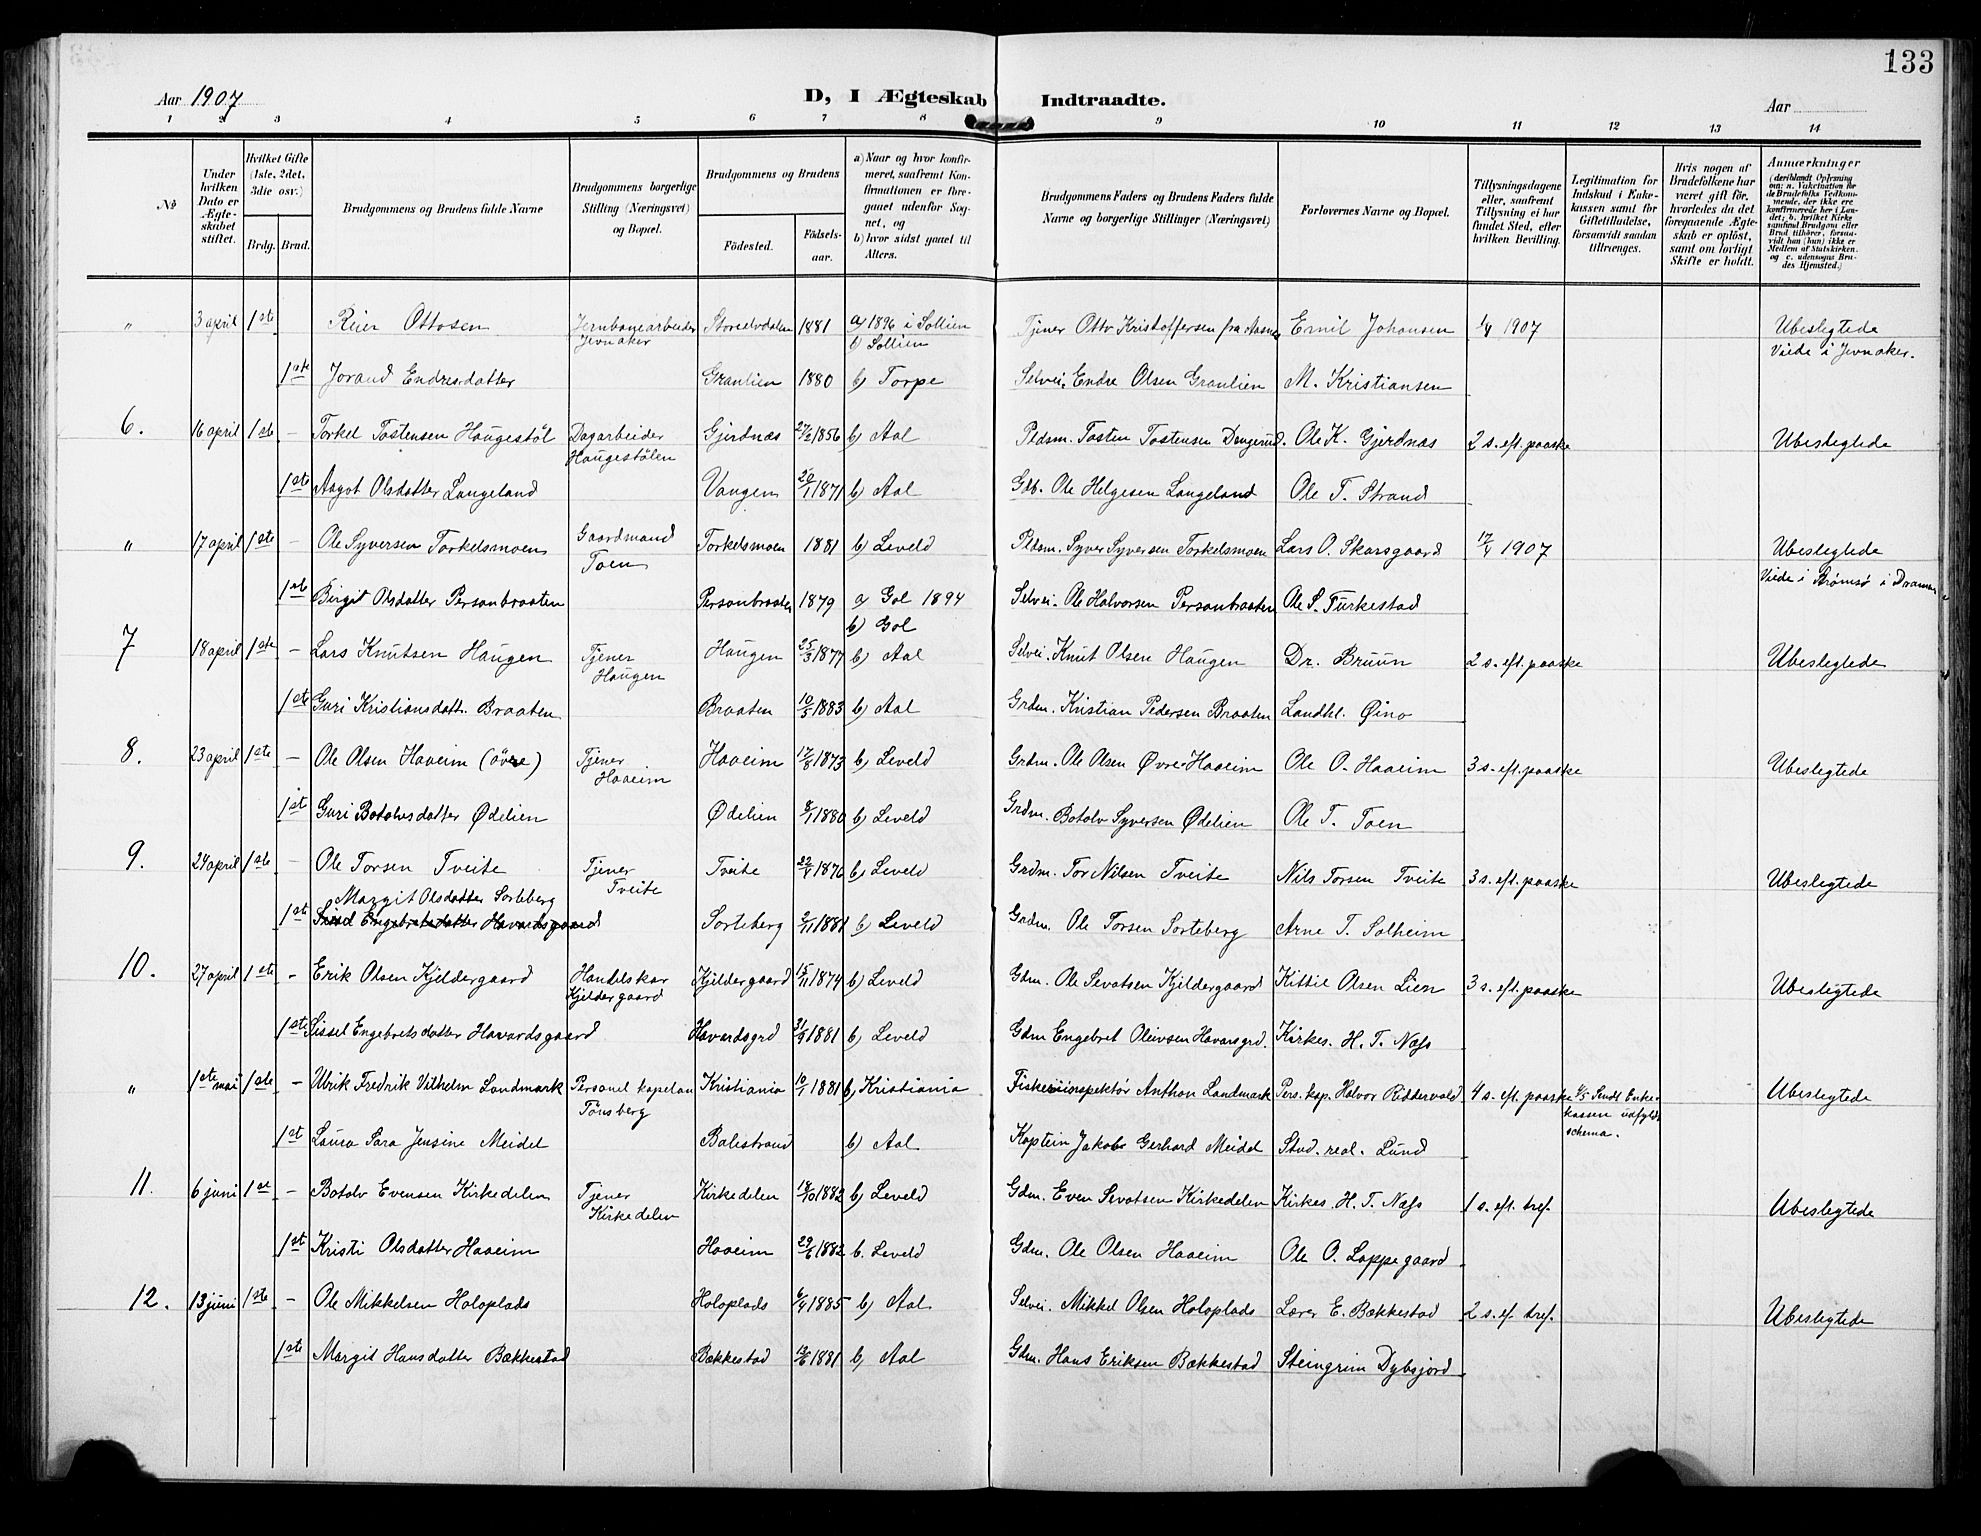 133
Aar 1907 D, I Ægteskab Indtraadte. Aar
1 2 3 4 5 6 7 8 9 10 11 12 13 14
№
Under hvilken Dato er Ægteskabet stiftet.
Hvilket Gifte (1ste, 2det, 3die osv.)
Brdg. Brud.
Brudgommens og Brudens fulde Navne
Brudgommens borgerlige Stilling (Næringsvei) og Bopæl.
Brudgommens og Brudens
Fødested. Fødselsaar.
a) Naar og hvor konfirmeret, saafremt Konfirmationen er foregaaet udenfor Sognet, og
b) hvor sidst gaaet til Alters.
Brudgommens Faders og Brudens Faders fulde Navne og borgerlige Stillinger (Næringsvei)
Forlovernes Navne og Bopæl.
Tillysningsdagene eller, saafremt Tillysning ei har fundet Sted, efter hvilken Bevilling.
Legitimation for Indskud i Enkekassen samt for Giftetilladelse, forsaavidt saadan tiltrænges.
Hvis nogen af Brudefolkene har været gift før, hvorledes da det foregaaende Ægteskab er opløst, samt om lovligt Skifte er holdt.
Anmærkninger (deriblandt Oplysning om: a. Vakcination for de Brudefolks Vedkommende, der ikke ere konfirmerede her i Landet; b. hvilket Kirkesamfund Brudgom eller Brud tilhører, forsaavidt han (hun) ikke er Medlem af Statskirken, og c. udensogns Brudes Hjemsted.)
„ 3 april 1ste Reier Ottosen Jernbanearbeider Storelvdalen 1881 a) 1896 i Sollien Tjener Otto Kristoffersen fra Aasnes Emil Johansen 1/4 1907 Ubeslegtede
Jevnaker b) Sollien Viede i Jevnaker.
1ste Jorand Endresdatter Granlien 1880 b) Torpe Selvei. Endre Olsen Granlien M. Kristiansen
6. 16 april 1ste - Torkel Tostensen Haugestøl Dagarbeider Gjerdnæs 27/2 1856 b) Aal Pldsm. Tosten Tostensen Dengerud. Ole K. Gjerdnæs 2 s. eft. paaske Ubeslegtede
Haugestølen
1ste Aagot Olsdatter Langeland Vangen 20/1 1871 b) Aal Gdb. Ole Helgesen Langeland Ole T. Strand
„ 17 april 1ste - Ole Syversen Torkelsmoen Gaardmand Torkelsmoen 1881 b) Leveld Pldsm. Syver Syversen Torkelsmoen Lars O. Skarsgaard 17/4 1907 Ubeslegtede
Toen Viede i Strømsø i Drammen
1ste Birgit Olsdatter Personbraaten Personbraaten 1879 a) Gol 1894 Selvei. Ole Halvorsen Personbraaten Ole S. Turkestad
b) Gol
7 18 april 1ste - Lars Knutsen Haugen Tjener Haugen 25/3 1877 b) Aal Selvei. Knut Olsen Haugen Dr. Bruun 2 s. eft. paaske Ubeslegtede
Haugen
1ste Guri Kristiansdatt. Braaten Braaten 10/5 1883 b) Aal Grdm. Kristian Pedersen Braaten Landhl. Øino
8. 23 april 1ste - Ole Olsen Haaeim (øvre) Tjener Haaeim 17/8 1873 b) Leveld Grdm. Ole Olsen Øvre-Haaeim Ole O. Haaeim 3 s. eft. paaske Ubeslegtede
Haaeim
1ste Guri Botolvsdatter Ødelien Ødelien 8/1 1880 b) Leveld Grdm. Botolv Syversen Ødelien Ole T. Toen
9. 24 april 1ste - Ole Torsen Tveite Tjener Tveite 22/4 1876 b) Leveld Grdm. Tor Nilsen Tveite Nils Torsen Tveite 3 s. eft. paaske Ubeslegtede
Tveite
Margit Olsdatter Sorteberg
1ste Sissel Engebretsdatter Havardsgaard Sorteberg 2/11 1881 b) Leveld Grdm. Ole Torsen Sorteberg Arne T. Solheim
10. 27 april 1ste - Erik Olsen Kjeldergaard Handelskar Kjeldergaard 15/11 1874 b) Leveld Gdm. Ole Sevatsen Kjeldergaard Kittil Olsen Lien 3 s. eft. paaske Ubeslegtede
Kjeldergaard
1ste Sissel Engebretsdatter Havardsgaard Havardsgrd 21/9 1881 b) Leveld Gdm Engebret Oleivsen Havarsgrd. Kirkes. H. T. Næss
„ 1ste mai 1ste - Ulrik Fredrik Vilhelm Landmark Personel kapelan Kristiania 10/1 1881 b) Kristiania Fiskeriinspektør Anthon Landmark Pers. kap. Halvor Riddervold 4 s. eft. paaske 4/5 Sendt Enkekassen udfyldt schema. Ubeslegtede
Tønsberg
1ste Laura Sara Jensine Meidel Balestrand b) Aal Kaptein Jakob Gerhard Meidel Stud. real. Lund
11. 6 juni 1ste - Botolv Evensen Kirkedelen Tjener Kirkedelen 18/10 1882 b) Leveld Gdm. Even Sevatsen Kirkedelen Kirkes. H. T. Næss 1 s. eft. tref. Ubeslegtede
Kirkedelen
1ste Kristi Olsdatter Haaeim Haaeim 29/6 1882 b. Leveld Gdm. Ole Olsen Haaeim Ole O. Loppegaard
12. 13 juni 1ste - Ole Mikkelsen Holoplads Holoplads 6/4 1885 b) Aal Selvei. Mikkel Olsen Holoplads Lærer E. Bækkestad 2 s. ef. tref. Ubeslegtede
1ste Margit Hansdatter Bækkestad Bækkestad 12/6 1881 b) Aal Gdm. Hans Eriksen Bækkestad Steingrim Dybsjord